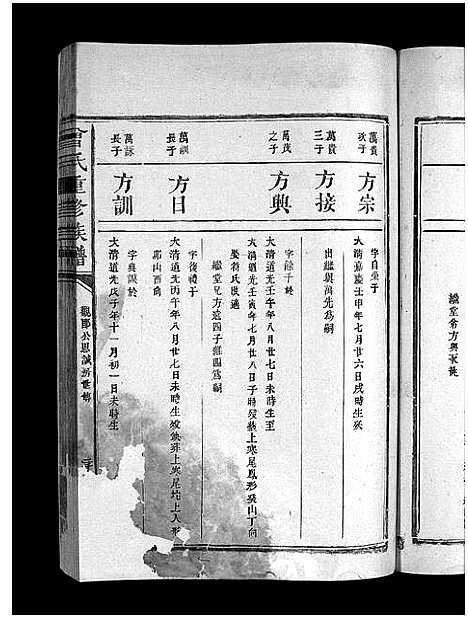 繼堂弟方興承祧
萬貴
次子
方宗
字自堂于
大清嘉慶壬申年七月廿六日戌時生歿
萬貴
三子
方接
出繼與萬先為嗣
萬茂
之子
方興
字餘千於
大清道光壬午年八月廿七日未時生至
大清道光壬寅年七月廿八日子時歿葬上寒尾鳳形飛山丁向
娶蔣氏改適
繼堂兄方遠四子雍四為嗣
萬訓
長子
方日
字復禮于
大清道光丙午年八月廿七日未時生歿俱葬上寒尾坨上人形
山酉
萬詠
長子
方訓
字典謨於
大清道光戊子年十一月初一日未時生
曾氏重修族譜
觀郎公恩誠房世傳